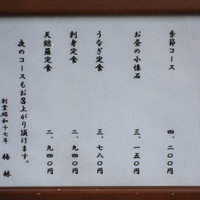 季節コース 四、二〇〇円
お昼の小懐石 三、一五〇円
うなぎ定食 三、七八〇円
刺身定食 二、九四〇円
天麩羅定食 二、九四〇円
夜のコースもお召上がり頂けます。
創業昭和十七年 梅林